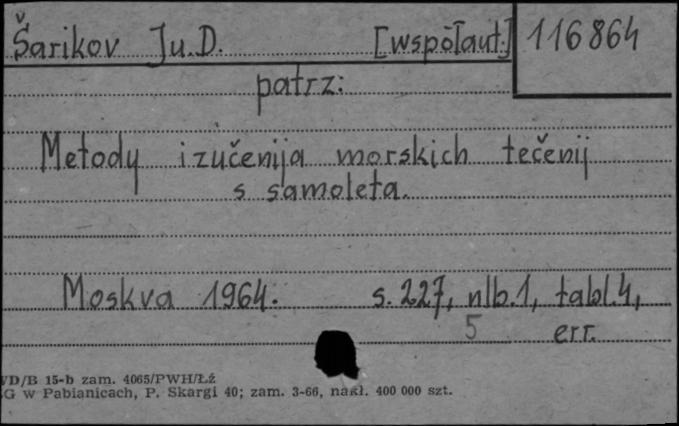 Šarikov Ju.D. [współaut.] 116864
patrz:
Metody izučenija morskich tečenij
s samoleta.
Moskva 1964. s. 227, nlb.1, tabl.4,
5 err.
VD/B 15-b zam. 4065/PWH/Łź
G w Pabianicach, P. Skargi 40; zam. 3-66, nakł. 400 000 szt.